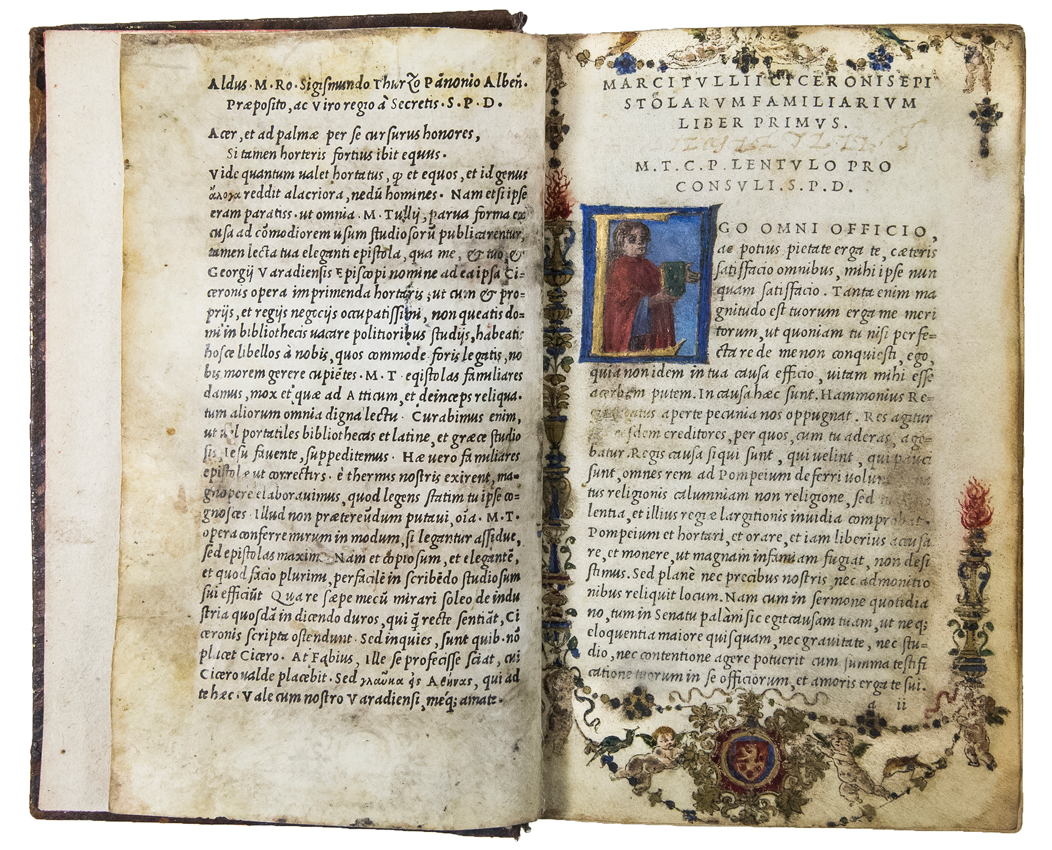 Aldus·M·Ro·Sigismundo Thurzo Pãnonio Albeñ·
Præposito, ac Viro regio à Secretis·S·P·D·
Acer, et ad palmæ per se cursurus honores,
Si tamen horteris fortius ibit equus·
Vide quantum ualet hortatus, ꝙ et equos, et id genus
ἄλογα reddit alacriora, nedũ homines· Nam etsi ipse
eram paratiss·ut omnia·M·Tullij, parua forma ex
cusa ad cõmodiorem usum studiosorũ publicarentur,
tamen lecta tua eleganti epistola, qua me, & tuo, &
Georgij Varadiensis Episcopi nomine ad ea ipsa Ci=
ceronis opera imprimenda hortaris; ut cum & pro=
prijs, et regijs negocijs occupatissimi, non queatis do=
mi in bibliothecis uacare politioribus studijs, habeatis
hosce libellos à nobis, quos commode foris legatis, no
bis morem gerere cupiẽtes·M·T·epistolas familiares
damus, mox et quæ ad Atticum, et deinceps reliqua·
tum aliorum omnia digna lectu· Curabimus enim,
ut uel portatiles bibliothecas et latine, et græce studio
sis, Iesu fauente, suppeditemus· Hæ uero familiares
epistolæ ut correctirs· è thermis nostris exirent, ma=
gnopere elaborauimus, quod legens statim tu ipse co=
gnosces· Illud non prætereũdum putaui, oĩa·M·T·
opera conferre mirum in modum, si legantur assidue,
sed epistolas maxim Nam et copiosum, et elegantẽ,
et quod facio plurimi, per facilẽ in scribẽdo studiosum
sui efficiũt Quare sæpe mecũ mirari soleo de indu
stria quosdã in dicendo duros, qui q̃ recte sentiãt, Ci
ceronis scripta ostendunt· Sed inquies, sunt quib·nõ
placet Cicero· At Fabius, Ille se profecisse sciat, cui
Cicero ualde placebit· Sed γλαῦκα εἰς Ἀθήνας, qui ad
te hæc· Vale cum nostro Varadiensi, meq; amate·
MARCI TVLLII CICERONIS EPI
STOLARVM FAMILIARIVM
LIBER PRIMVS.
M.T.C.P.LENTVLO PRO
CONSVLI.S.P.D.
EGO OMNI OFFICIO,
ac potius pietate erga te, cæteris
satisfacio omnibus, mihi ipse nun
quam satisfacio. Tanta enim ma
gnitudo est tuorum erga me meri
torum, ut quoniam tu nisi perfe=
cta re de me non conquiesti, ego,
quia non idem in tua causa efficio, uitam mihi esse
acerbam putem. In causa hæc sunt. Hammonius Re=
aperte pecunia nos oppugnat. Res agitur
creditores, per quos, cum tu aderas, age=
batur. Regis causa si qui sunt, qui uelint, qui pauci
sunt, omnes rem ad Pompeium deferri uolunt
tus religionis calumniam non religione, sed
lentia, et illius regiæ largitionis inuidia comprobat.
Pompeium et hortari, et orare, et iam liberius accusa
re, et monere, ut magnam infamiam fugiat, non desi
stimus. Sed planè nec precibus nostris, nec admonitio
nibus reliquit locum. Nam cum in sermone quotidia
no, tum in Senatu palàm sic egit causam tuam, ut neq;
eloquentia maiore quisquam, nec grauitate, nec stu=
dio, nec contentione agere potuerit cum summa testifi
catione tuorum in se officiorum, et amoris erga te sui.
a ii